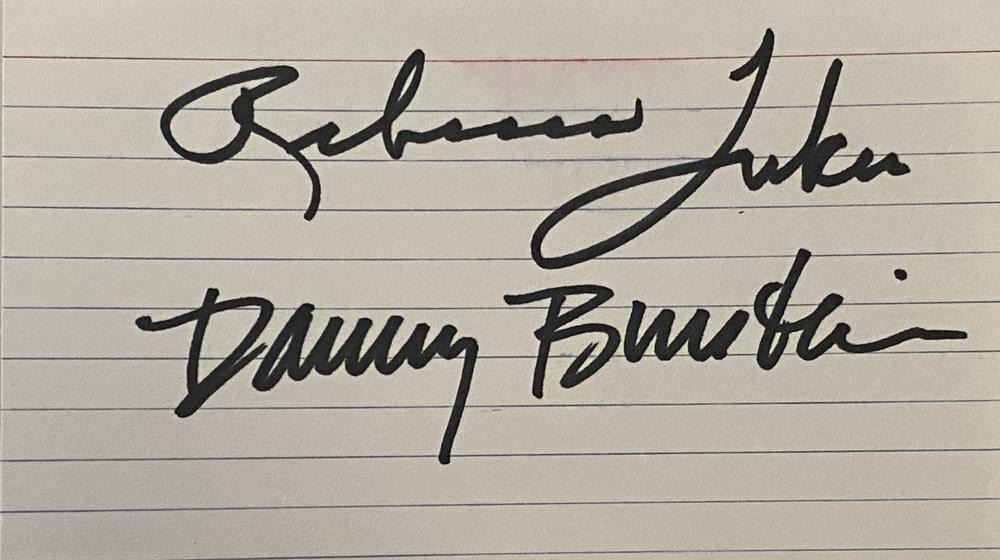 Rebecca Luker
Danny Burstein